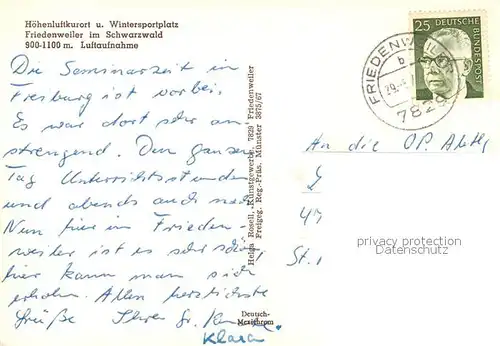 Höhenluftkurort u. Wintersportplatz
Friedenweiler im Schwarzwald
900-1100 m. Luftaufnahme
Die Seminarzeit in
Freiburg ist vorbei.
Es war dort sehr an
strengend. Den ganzen
Tag Unterrichtsstunden
und abends auch noch.
Nun hier in Frieden-
weiler ist es sehr schön,
hier kann man sich
erholen. Allen herzlichste
Grüße Ihre Sr.
Klara
Helga Rosell, Kunstgewerbe, 7829 Friedenweiler
Freigeg. Reg.-Präs. Münster 3875/67
Deutsch-
Mexichrom
25 DEUTSCHE BUNDESPOST
FRIEDENWEILER
b
29.
7829
An die OP. Abtlg
47
St. 1
privacy protection
Datenschutz